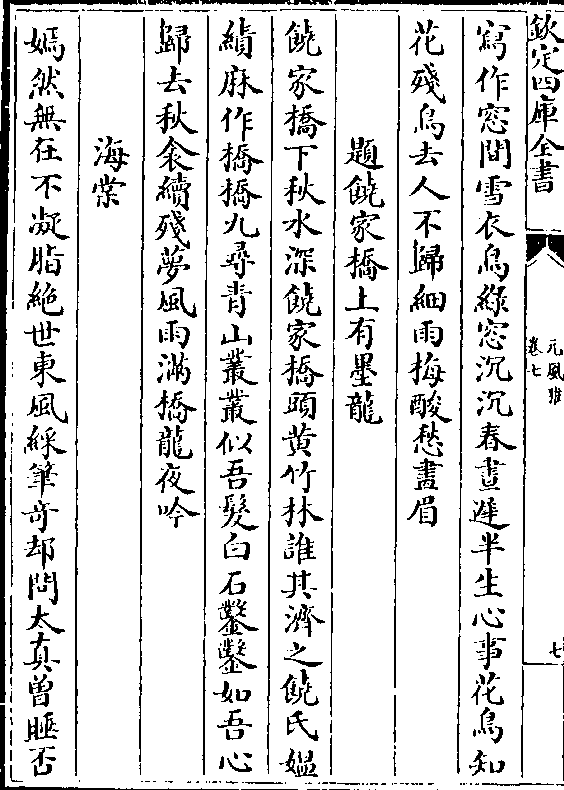 欽定四庫全書
元風雅
卷七
七
寫作窓間雪衣鳥綠窓沉沉春晝遲半生心事花鳥知
花殘鳥去人不歸細雨梅酸愁畫眉
題饒家橋上有墨龍
饒家橋下秋水深饒家橋頭黄竹林誰其濟之饒氏媼
績麻作橋橋九尋青山叢叢似吾髮白石鑿鑿如吾心
歸去秋衾續殘夢風雨滿橋龍夜吟
海棠
嫣然無在不凝脂絶世東風綵筆竒却問太真曾睡否